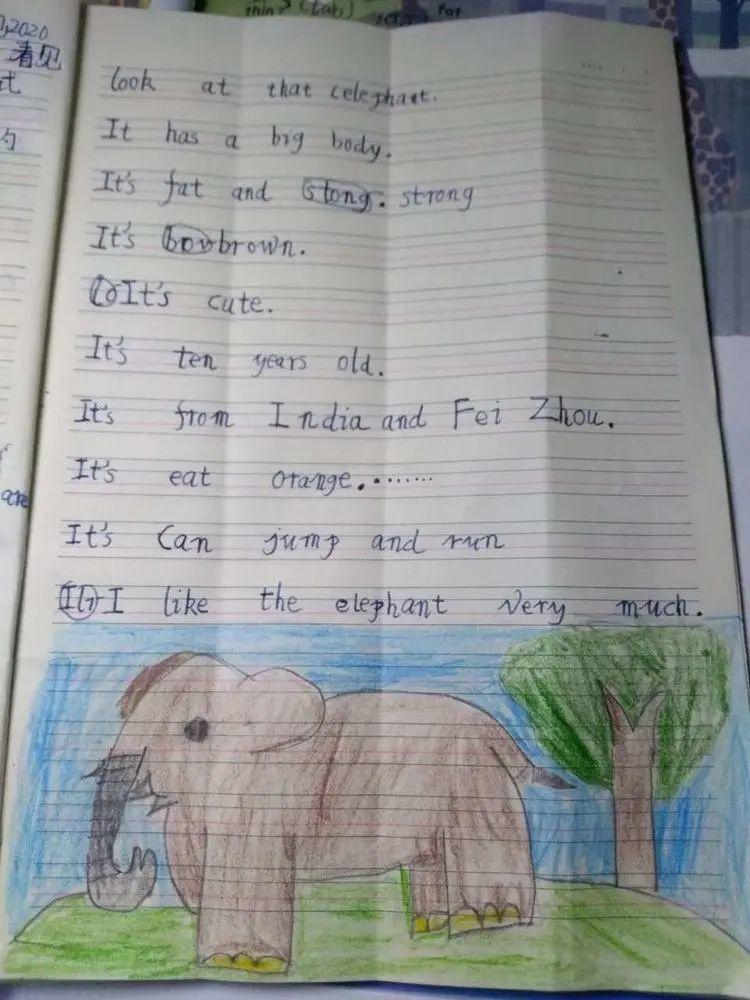 thin? (Lab)
2020
看见
式
look at that celephant.
It has a big body.
It's fat and stong. strong
It's bov brown.
It's cute.
It's ten years old.
It's from India and Fei Zhou.
It's eat orange.........
It's Can jump and run
I like the elephant very much.